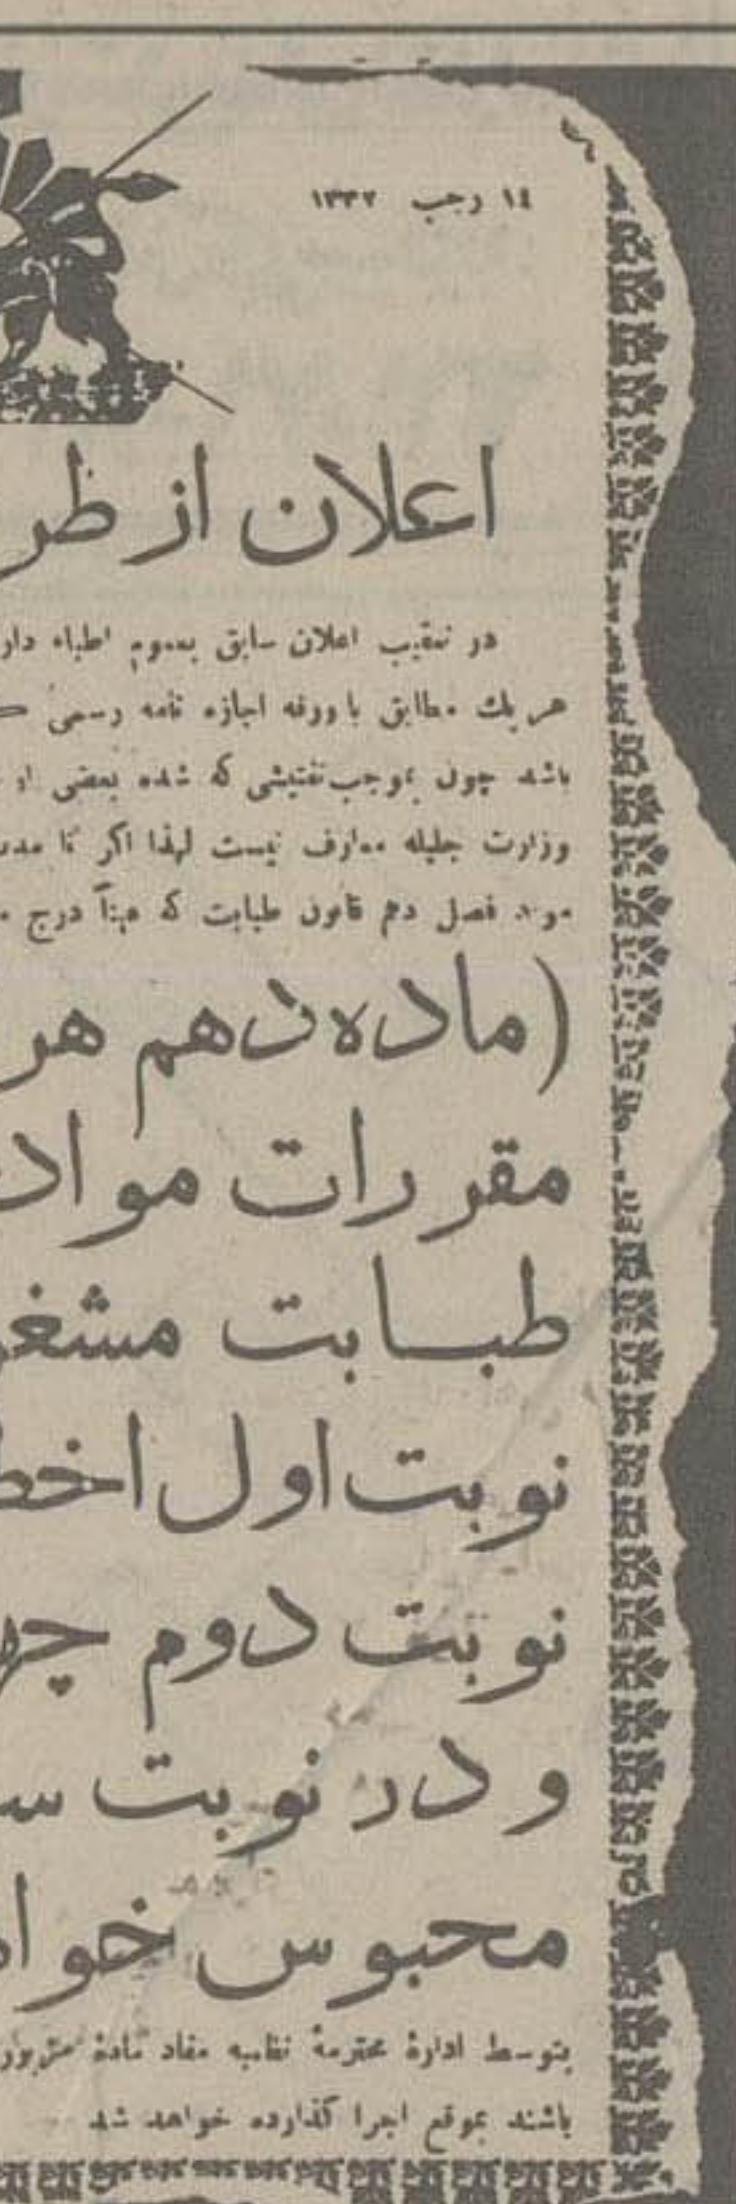 ١٤ رجب ١٣٣٢
اعلان از طر
در تعقیب اعلان سابق بعموم اطباء دار
هر یك مطابق با ورقه اجازه نامه رسمی
باشد چون بموجب تفتیشی که شده بعضی از
وزارت جلیله معارف نیست لهذا اکر تا مد
فصل دهم قانون طبابت که عیناً درج
(ماده دهم هر
مقررات مواد
طبابت مشغو
نوبت اول اخط
نوبت دوم چه
و در نوبت س
محبوس خوا
بتوسط ادارهٔ محترمهٔ نظمیه مفاد مادهٔ مزبور
باشند بموقع اجرا کذارده خواهد شد